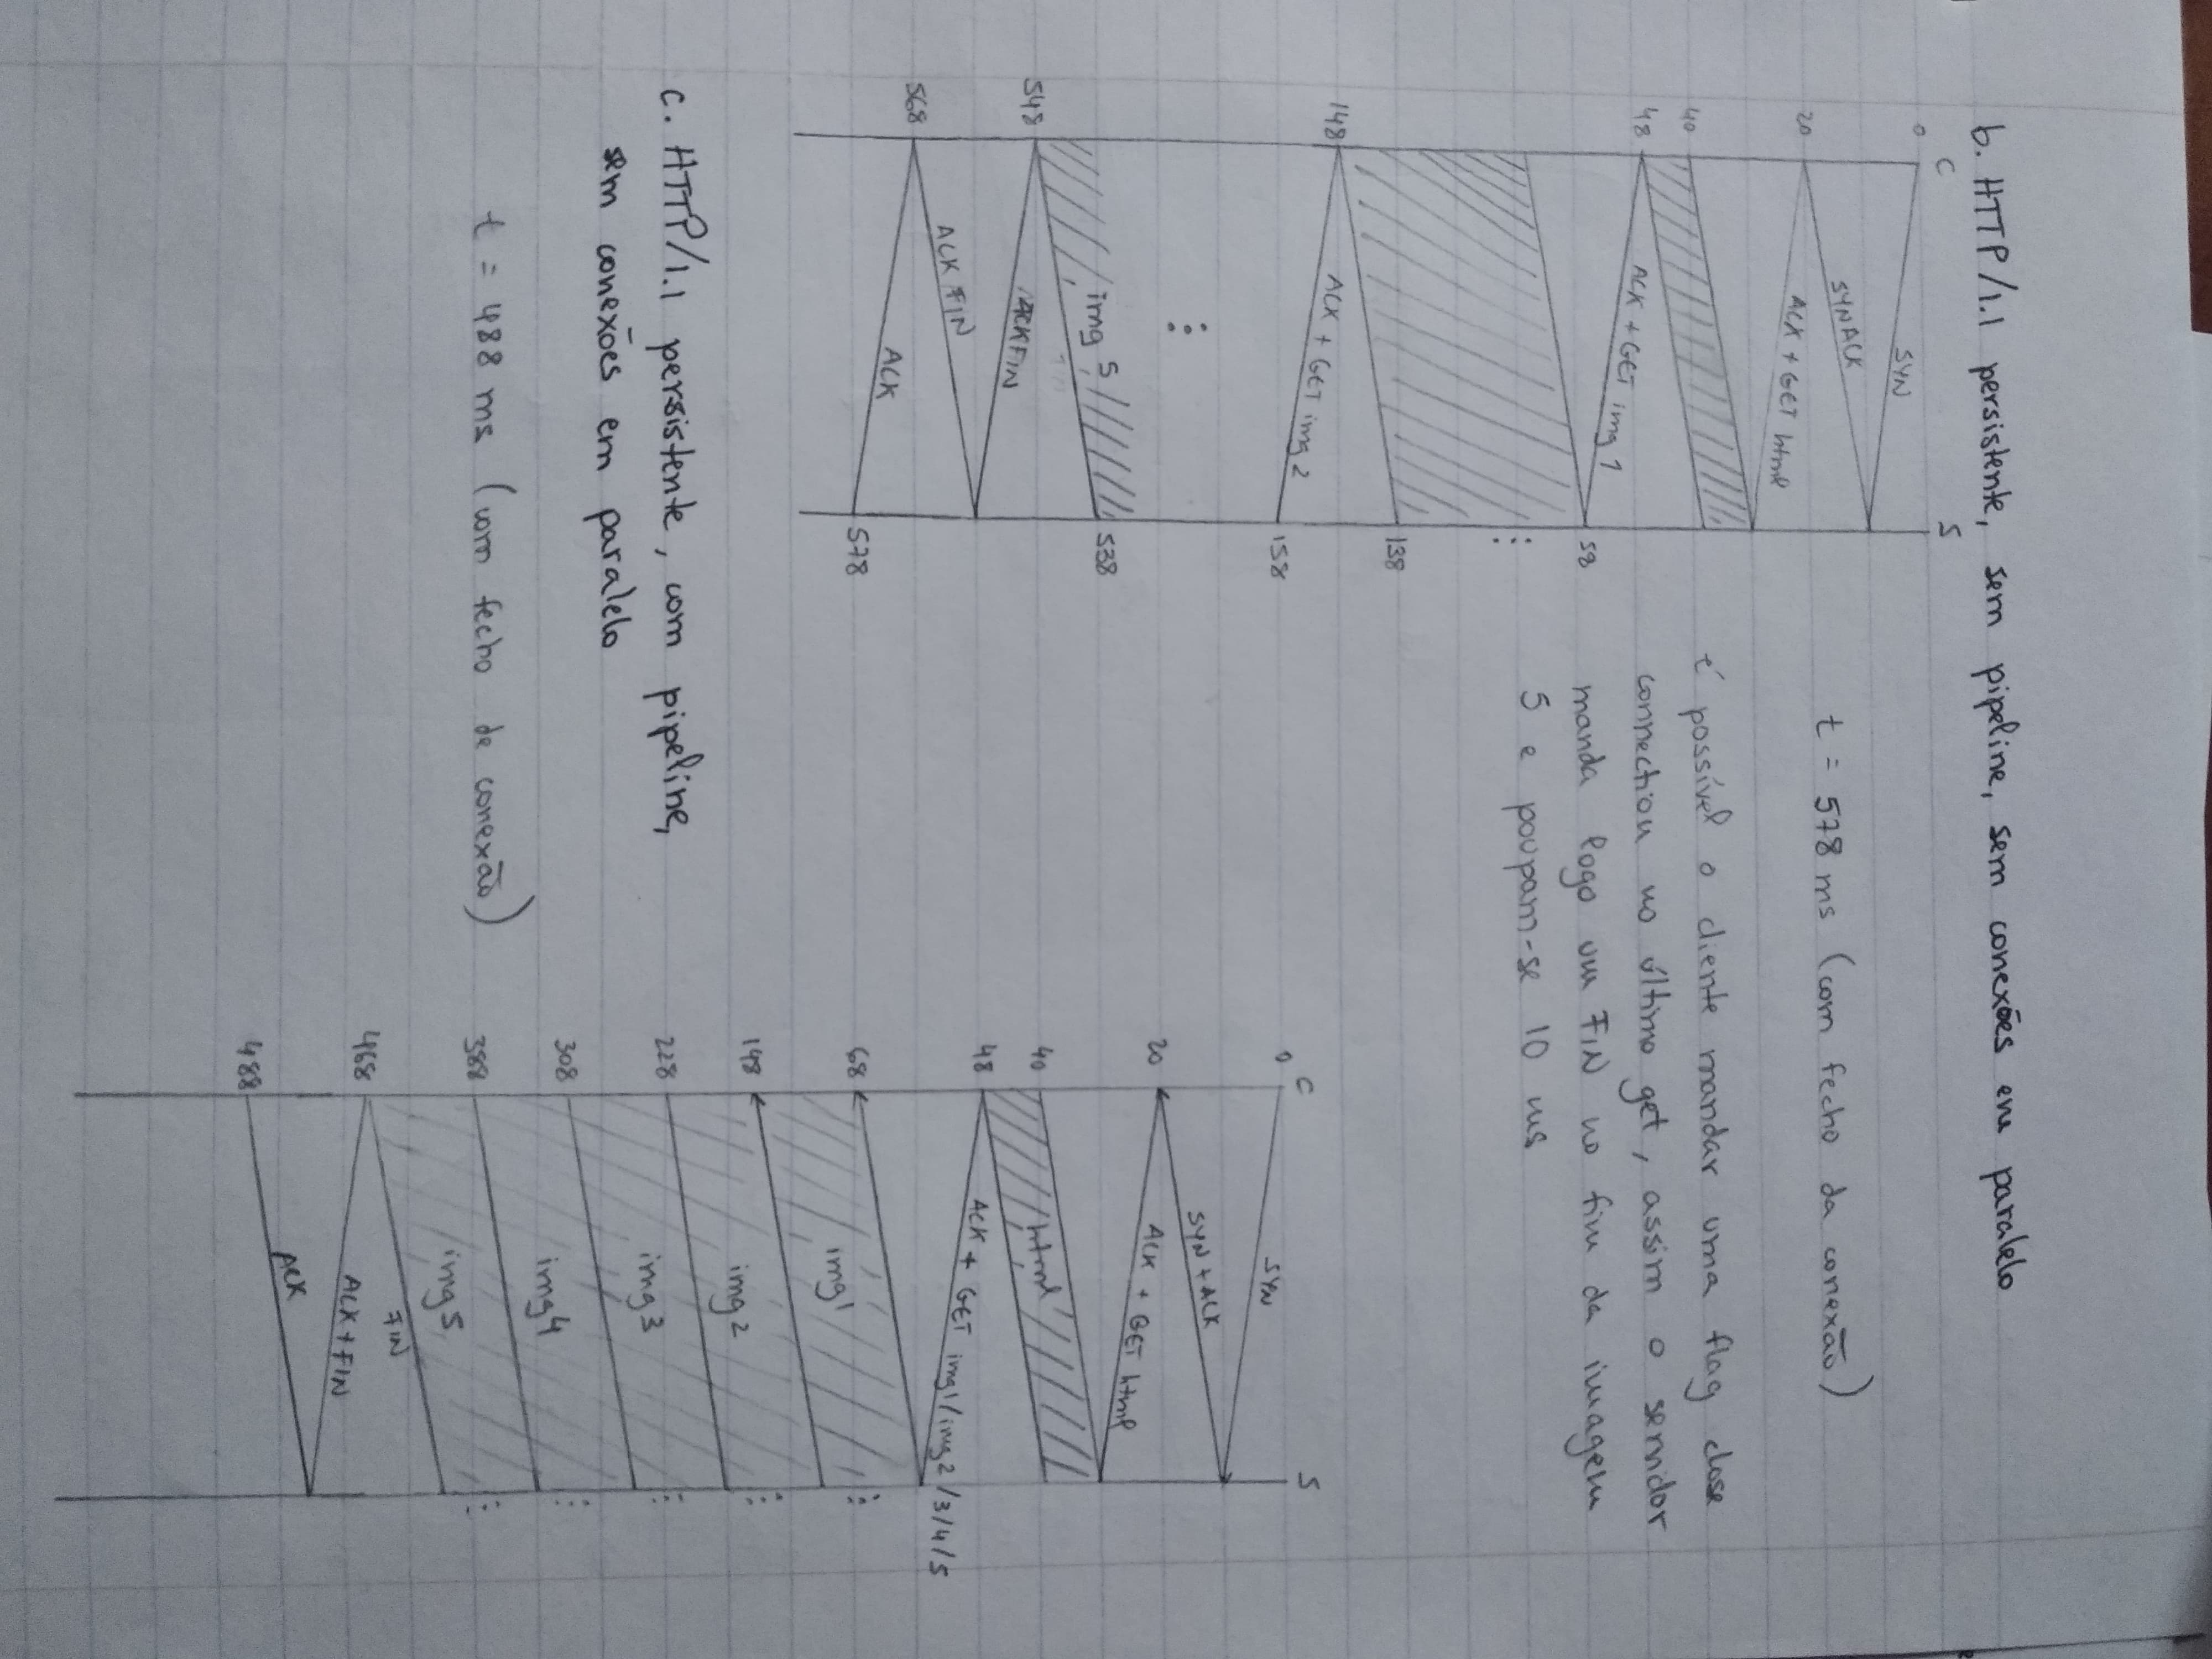 b. HTTP/1.1 persistente, sem pipeline, sem conexões em paralelo
C S
0
SYN
SYNACK
20
ACK + GET html
40
48
ACK + GET img 1
58
138
148
ACK + GET img 2
158
img 5
538
548
ACKFIN
ACK FIN
568
ACK
578
t = 578 ms (com fecho da conexão)
é possível o cliente mandar uma flag close
connection no último get, assim o servidor
manda logo um FIN no fim da imagem
5 e poupam-se 10 ms
c. HTTP/1.1 persistente, com pipeline,
sem conexões em paralelo
t = 488 ms (com fecho de conexão)
C S
0
SYN
SYN + ACK
20
ACK + GET html
40
html
48
ACK + GET img1/img2/3/4/5
68
img1
148
img2
228
img3
308
img4
388
img5
FIN
468
ACK+FIN
ACK
488